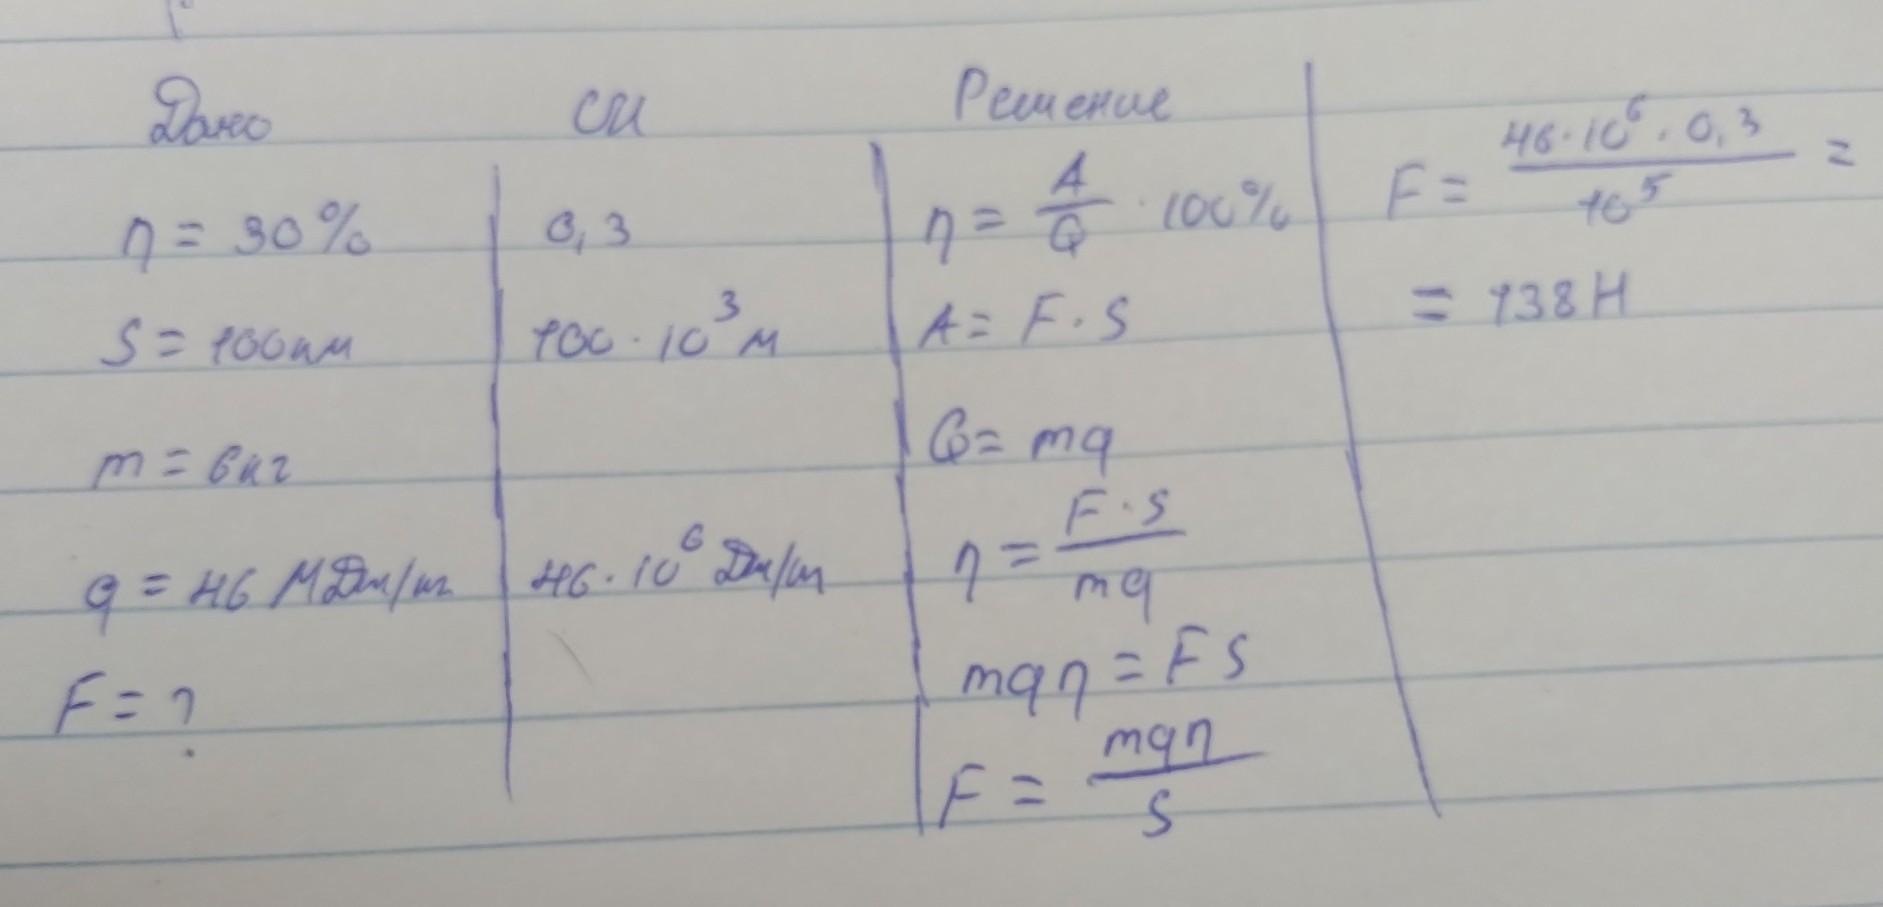 Дано
η = 30%
S = 100км
m = 6кг
q = 46 МДж/кг
F = ?
СИ
0,3
100 · 10³ м
46 · 10⁶ Дж/кг
Решение
η = A/Q · 100%
A = F · S
Q = mq
η = F · S / mq
mqη = FS
F = mqη / S
F = 46 · 10⁶ · 0,3 / 10⁵ =
= 138 Н